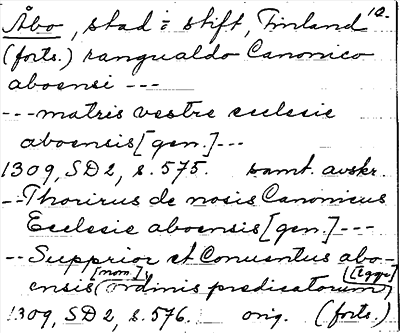 Åbo, stad i stift, Finland 12.
(forts.) rangualdo Canonico
aboensi ---
--- matris vestre ecclesie
aboensis [gen.] ---
1309, SD 2, s. 575. samt. avskr.
-- Thorirus de nosis Canonicus
Ecclesie aboensis [gen.] ---
-- Supprior et Conuentus abo-
ensis [nom.] (ordinis predicatorum) [igge]
1309, SD 2, s. 576. orig. (forts.)